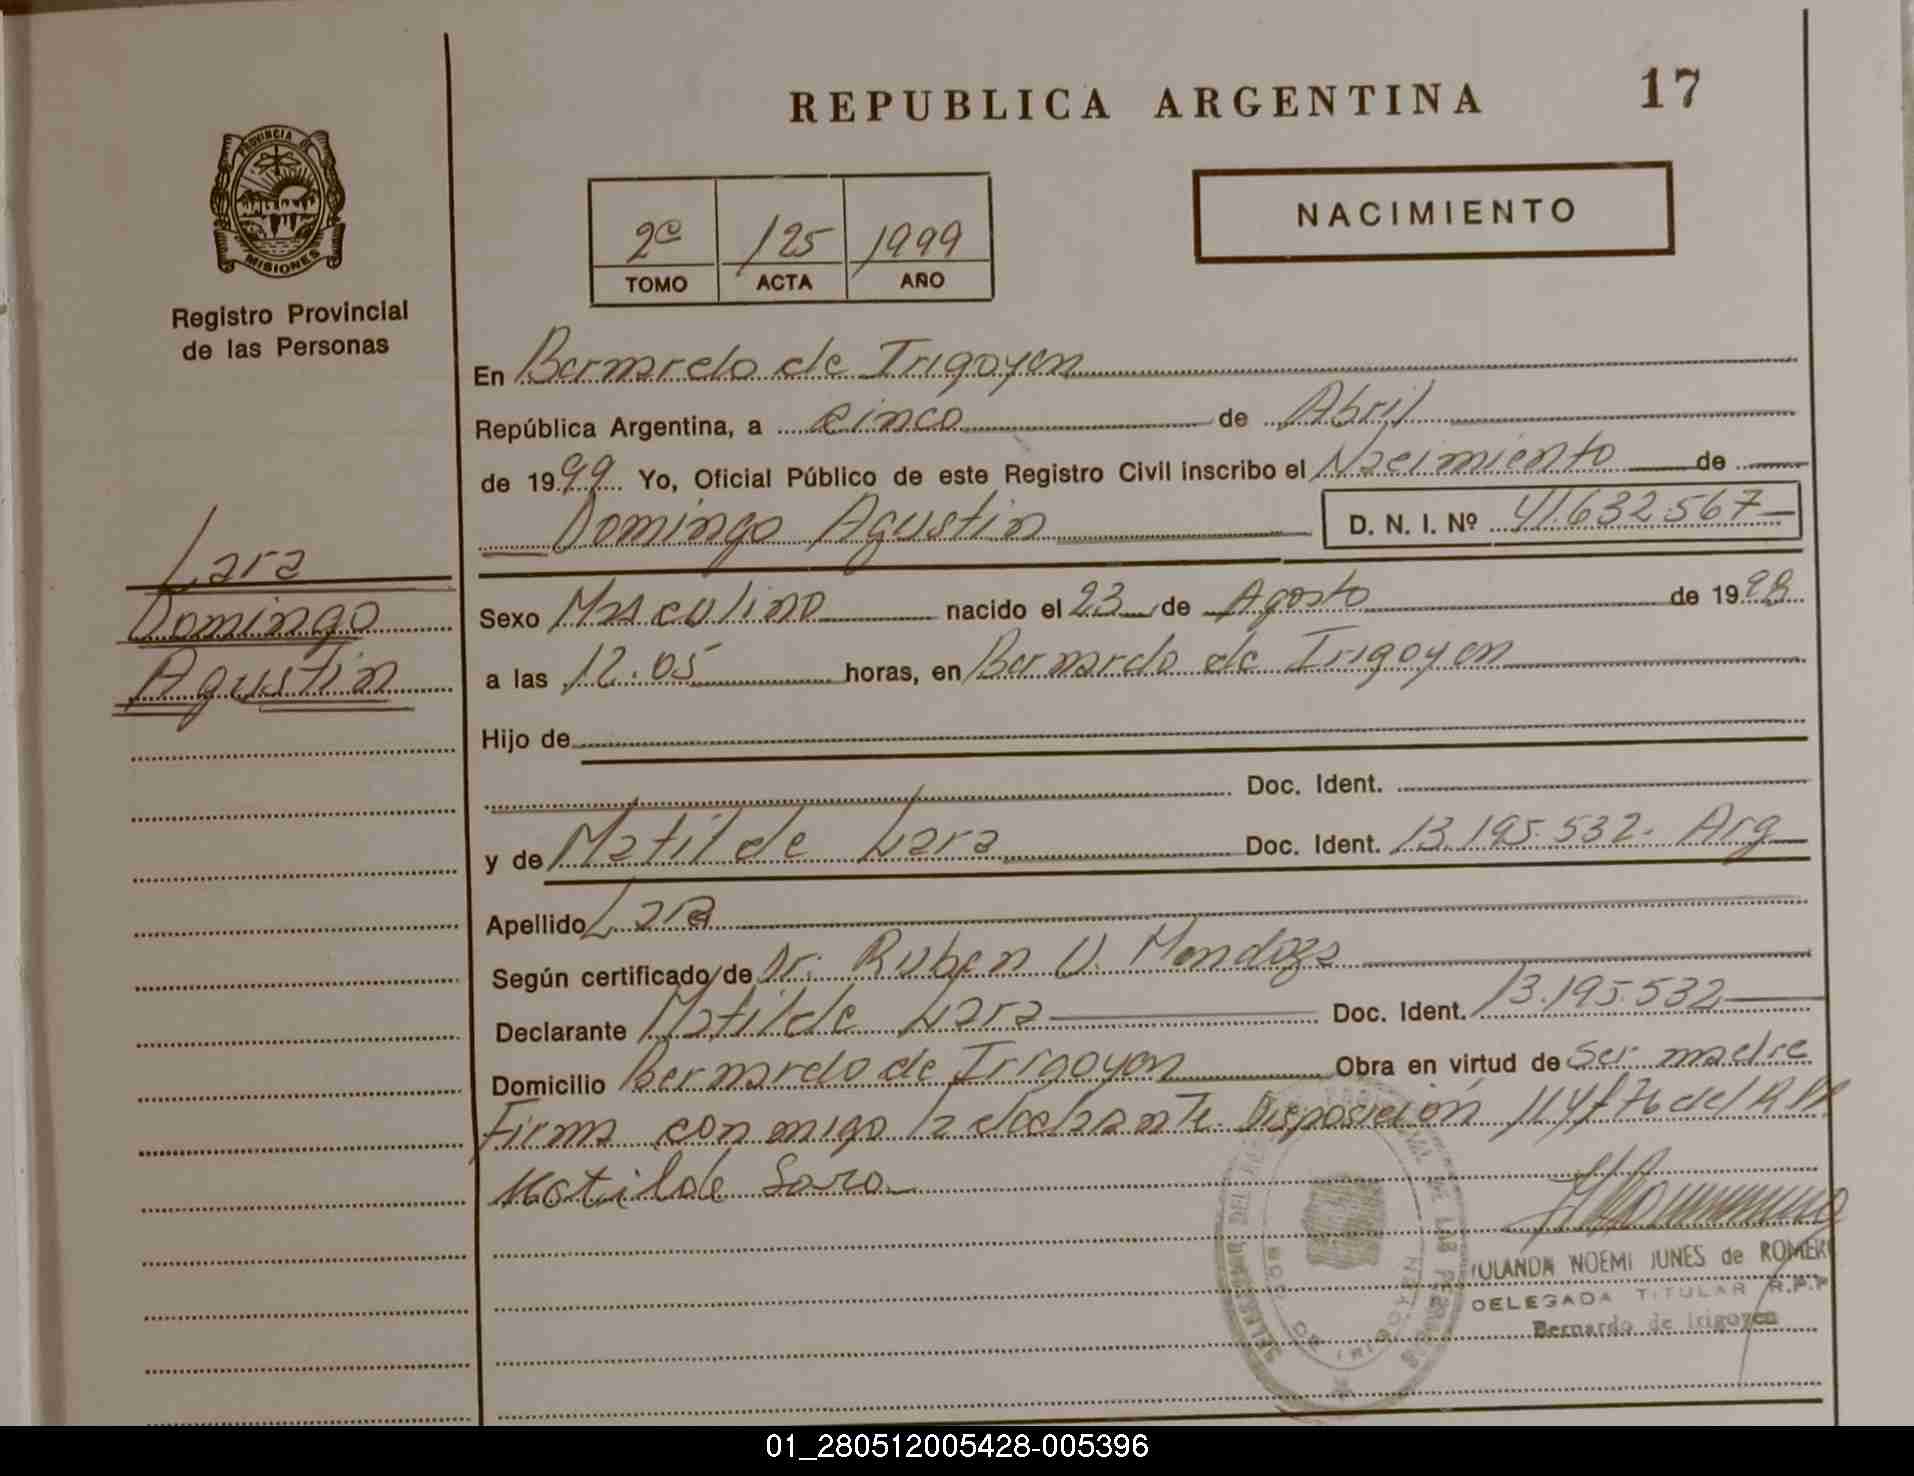 REPUBLICA ARGENTINA
17
PROVINCIA DE
MISIONES
Registro Provincial
de las Personas
2º 125 1999
TOMO ACTA AÑO
NACIMIENTO
En Bernardo de Irigoyen
República Argentina, a cinco de Abril
de 1999 Yo, Oficial Público de este Registro Civil inscribo el Nacimiento de
Domingo Agustin D. N. I. Nº 41.632.567
Lara
Domingo
Agustin
Sexo Masculino nacido el 23 de Agosto de 1998
a las 12.05 horas, en Bernardo de Irigoyen
Hijo de
Doc. Ident.
y de Matilde Lara Doc. Ident. 13.195.532. Arg
Apellido Lara
Según certificado de Dr. Ruben U. Mendoza
Declarante Matilde Lara Doc. Ident. 13.195.532
Domicilio Bernardo de Irigoyen Obra en virtud de ser madre
Firma conmigo la declarante. Disposición del
Matilde Lara
YOLANDA NOEMI JUNES de ROMERO
DELEGADA TITULAR R.P.P
Bernardo de Irigoyen
01_280512005428-005396